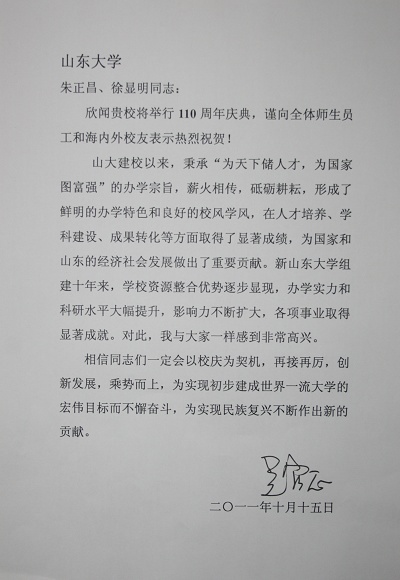 山东大学
朱正昌、徐显明同志：
欣闻贵校将举行 110 周年庆典，谨向全体师生员
工和海内外校友表示热烈祝贺！
山大建校以来，秉承“为天下储人才，为国家
图富强”的办学宗旨，薪火相传，砥砺耕耘，形成了
鲜明的办学特色和良好的校风学风，在人才培养、学
科建设、成果转化等方面取得了显著成绩，为国家和
山东的经济社会发展做出了重要贡献。新山东大学组
建十年来，学校资源整合优势逐步显现，办学实力和
科研水平大幅提升，影响力不断扩大，各项事业取得
显著成就。对此，我与大家一样感到非常高兴。
相信同志们一定会以校庆为契机，再接再厉，创
新发展，乘势而上，为实现初步建成世界一流大学的
宏伟目标而不懈奋斗，为实现民族复兴不断作出新的
贡献。
二〇一一年十月十五日